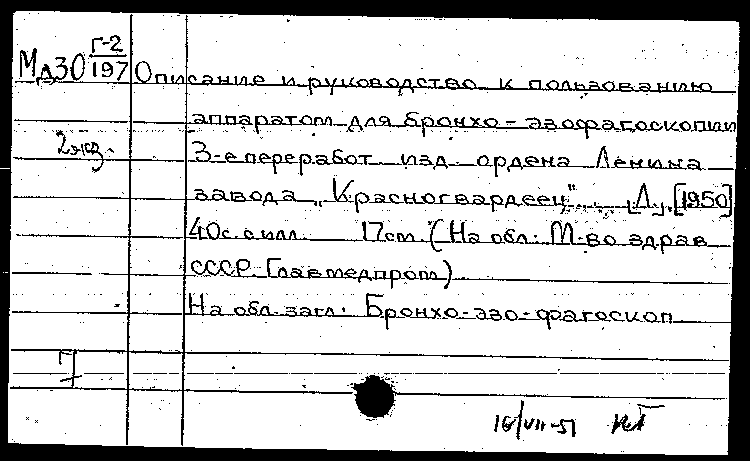 Мд30 Г-2/197 Описание и руководство к пользованию
аппаратом для бронхо-эзофагоскопии
2 экз. 3-е переработ изд. ордена Ленина
завода „Красногвардеец" Л. [1950]
40с. с илл. 17см (На обл: М-во здрав
СССР. Главмедпром)
На обл. загл: Бронхо-эзо-фагоскоп
7
16/VII-51